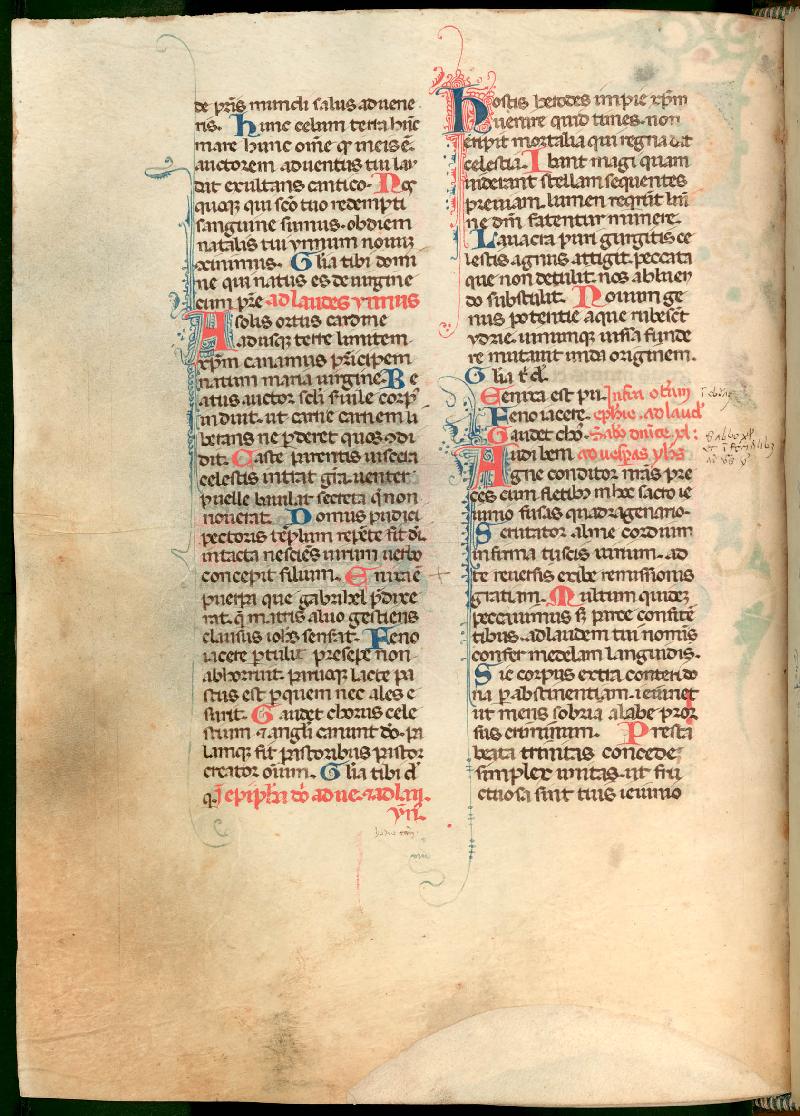 de pris mundi salus advene
ris. Hunc celum terra hunc
mare hunc ome q meis e
auctorem adventus tui lau
dat exultans cantico. Nos
quoq qui sco tuo redempti
sanguine sumus. obdiem
natalis tui ymnum nouum
concinimus. Glia tibi domi
ne qui natus es de uirgine
cum pre ad laudes ymnus
A solis ortus cardine
adusq terre limitem
xpm canamus principem
natum maria uirgine. Be
atus auctor scli seruile corp
induit. ut carne carnem li
berans ne pderet quos 9di
dit. Caste parentis uiscera
celestis intrat gra. uenter
puelle baiulat secreta q non
nouerat. Domus pudici
pectoris templum repente fit di.
intacta nesciens uirum uerbo
concepit filium. Enixa e
puerpa que gabrihel pdixe
rat. q matris aluo gestiens
clausus iohs senserat. Feno
iacere ptulit presepe non
abhorruit. paruoq lacte pa
stus est p quem nec ales e
surit. Gaudet chorus cele
stium 7 angli canunt do. pa
lamq fit pastoribus pastor
creator oium. Glia tibi d
q. I epiphia do ad ue. 7 ad lau.
yn.
Hostis herodes impie xpm
uenire quid times. non
eripit mortalia qui regna dat
celestia. Ibant magi quam
uiderant stellam sequentes
preuiam. lumen requirunt lumi
ne dm fatentur munere.
Lauacra puri gurgitis ce
lestis agnus attigit. peccata
que non detulit. nos abluen
do substulit. Nouum ge
nus potentie aque rubescunt
ydrie. uinumq iussa funde
re mutauit unda originem.
Glia t d.
Enixa est pu. Infra octam
Feno iacere. ephie. ad laud
Gaudet cho. Sabo dnice. xl:
Audi beni ad uespas ybs
Agne conditor nras pre
ces cum fletibus in hoc sacro ie
iunio fusas quadragenario.
Scrutator alme cordium
infirma tu scis uirium. ad
te reuersis exibe remissionis
gratiam. Multum quidez
peccauimus s3 parce confiten
tibus. ad laudem tui nominis
confer medelam languidis.
Sic corpus extra conteri do
na p abstinentiam. ieiunet
ut mens sobria a labe pror
sus criminum. Presta
beata trinitas concede
simplex unitas. ut fru
ctuosa sint tuis ieiunio